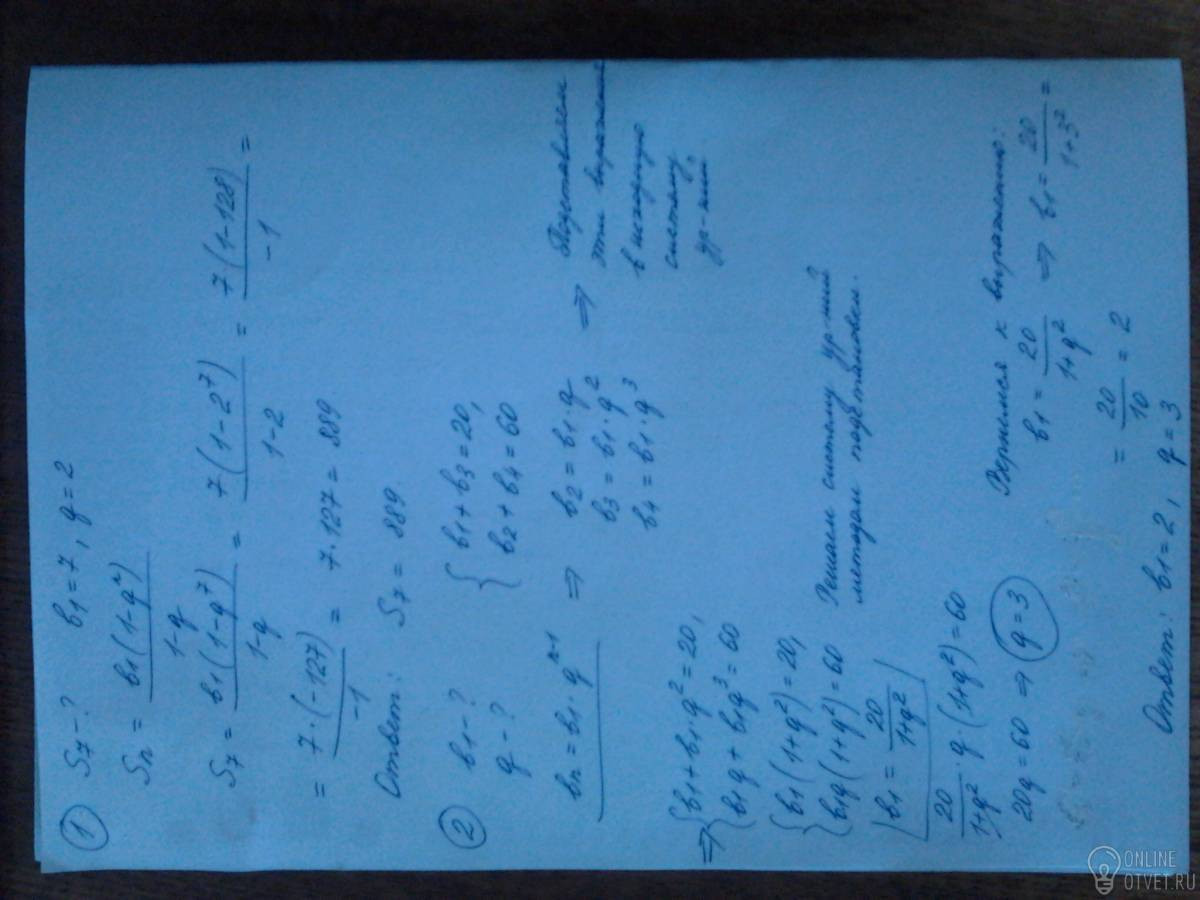 ① S₇ - ? b₁ = 7, q = 2
Sn = b₁(1-qⁿ) / 1-q
S₇ = b₁(1-q⁷) / 1-q = 7(1-2⁷) / 1-2 = 7·(1-128) / -1 =
= 7·(-127) / -1 = 7·127 = 889
Ответ: S₇ = 889.
② b₁ - ? { b₁ + b₃ = 20,
q - ? b₂ + b₄ = 60
bn = b₁·qⁿ⁻¹ ⇒ b₂ = b₁·q ⇒ Подставляем
b₃ = b₁·q² эти выражения
b₄ = b₁·q³ в исходную
систему
ур-ний.
⇒ { b₁ + b₁·q² = 20,
b₁q + b₁q³ = 60
{ b₁(1+q²) = 20,
b₁q(1+q²) = 60 Решаем систему ур-ний
методом подстановки.
b₁ = 20 / 1+q²
20 / 1+q² · q·(1+q²) = 60
20q = 60 ⇒ q = 3
Вернимся к выражению:
b₁ = 20 / 1+q² ⇒ b₁ = 20 / 1+3² =
= 20 / 10 = 2
Ответ: b₁ = 2, q = 3
ONLINE
OTVET.RU